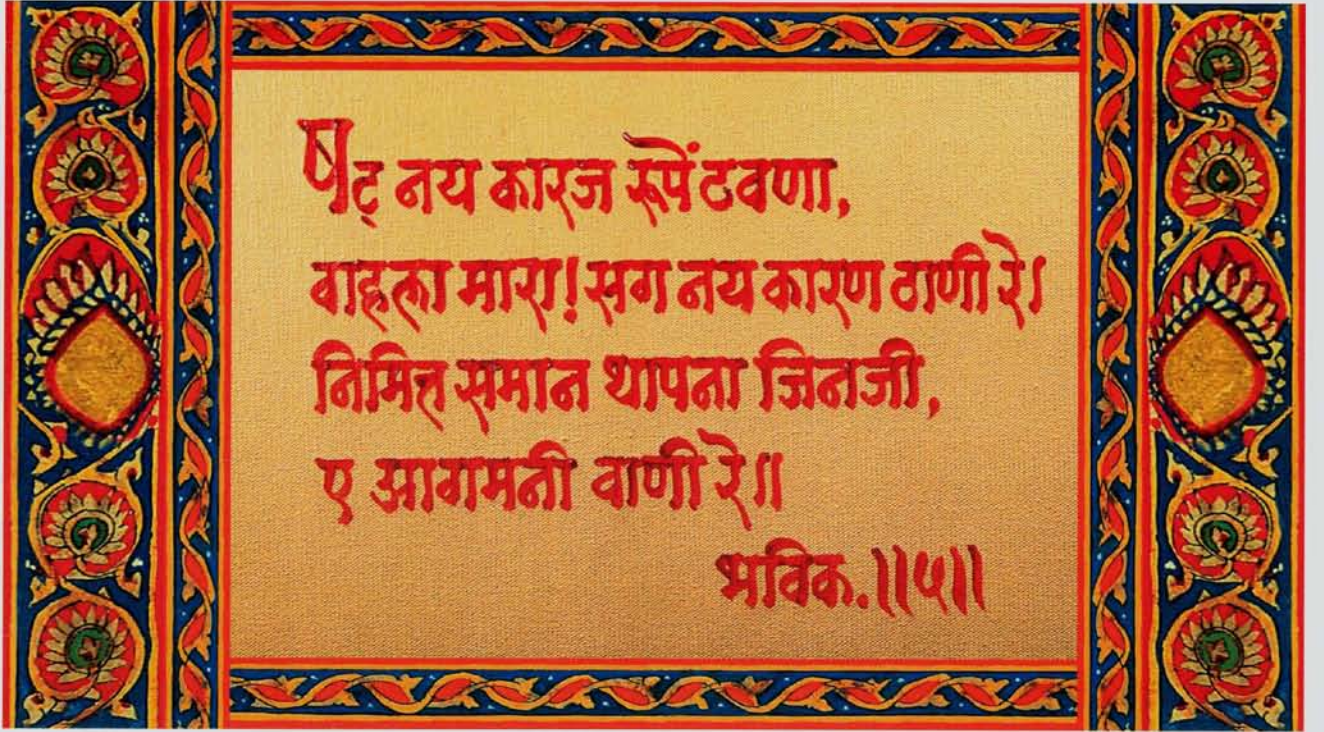 षट् नय कारज रूपें ठवणा,
वाहला मारा! सग नय कारण ठाणी रे।
निमित्त समान थापना जिनजी,
ए आगमनी वाणी रे॥
भविक.॥५॥